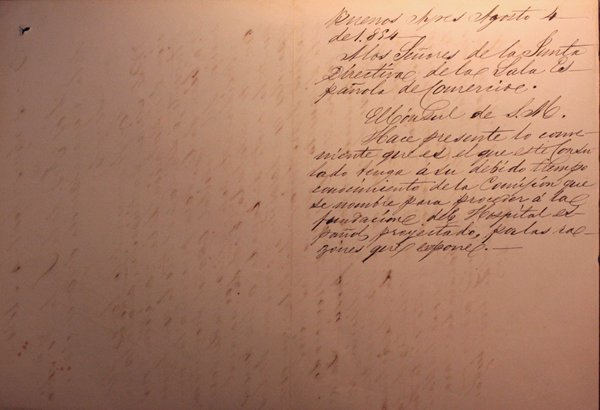 Buenos Ayres Agosto 4
de 1.854
A los Señores de la Junta
Directiva de la Sala Es
pañola de Comercio.
El Cónsul de S. M.
Hace presente lo conve-
niente que es el que este Consu
lado tenga a su debido tiempo
conocimiento de la Comisión que
se nombre para proveer á la
fundacion del Hospital es
pañol proyectado, por las ra
zones que expone.